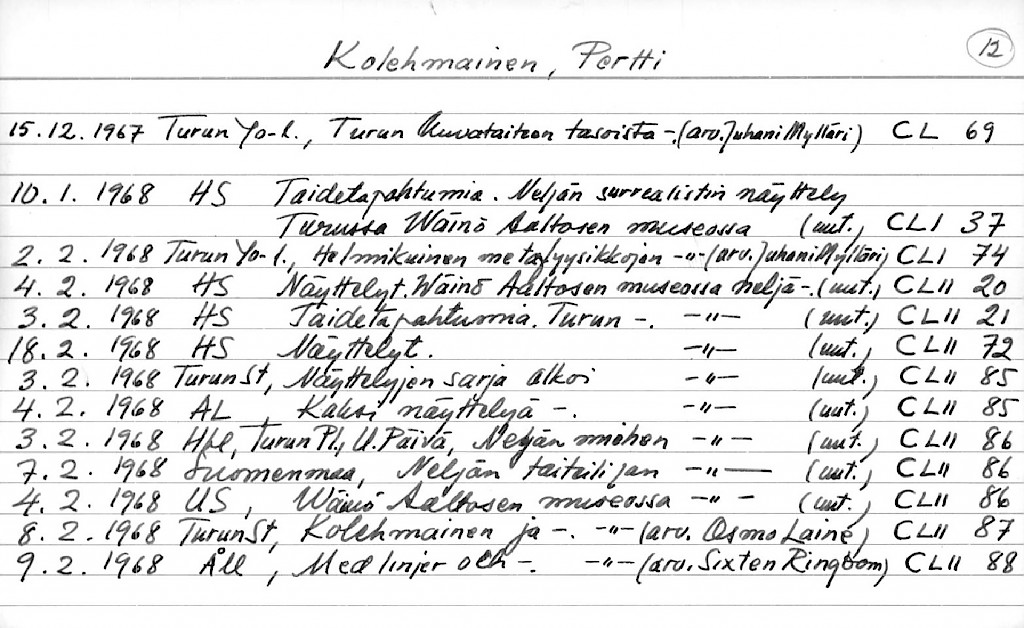 Kolehmainen, Pertti 12
15.12.1967 Turun Yo-l., Turun Kuvataiteen tasoista -. (arv. Juhani Mylläri) CL 69
10.1.1968 HS Taidetapahtumia. Neljän surrealistin näyttely
Turussa Wäinö Aaltosen museossa (uut.) CLI 37
2.2.1968 Turun Yo-l., Helmikuinen metafyysikkojen -"- (arv. Juhani Mylläri) CLI 74
4.2.1968 HS Näyttelyt. Wäinö Aaltosen museossa neljä -. (uut.) CLII 20
3.2.1968 HS Taidetapahtumia. Turun -. -"- (uut.) CLII 21
18.2.1968 HS Näyttelyt. -"- (uut.) CLII 72
3.2.1968 TurunSt, Näyttelyjen sarja alkoi -"- (uut.) CLII 85
4.2.1968 AL, Kaksi näyttelyä -. -"- (uut.) CLII 85
3.2.1968 Hbl, Turun Pl., U.Päivä, Neljän miehen -"- (uut.) CLII 86
7.2.1968 Suomenmaa, Neljän taiteilijan -"- (uut.) CLII 86
4.2.1968 US, Wäinö Aaltosen museossa -"- (uut.) CLII 86
8.2.1968 TurunSt, Kolehmainen ja -. -"- (arv. Osmo Laine) CLII 87
9.2.1968 Åll, Med linjer och -. -"- (arv. Sixten Ringbom) CLII 88